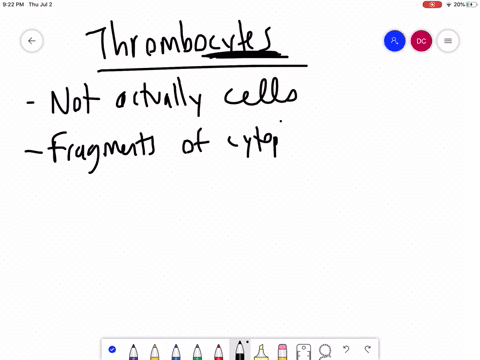 9:22 PM Thu Jul 2
20%
DC
Thrombocytes
- Not actually cells
- Fragments of cytop